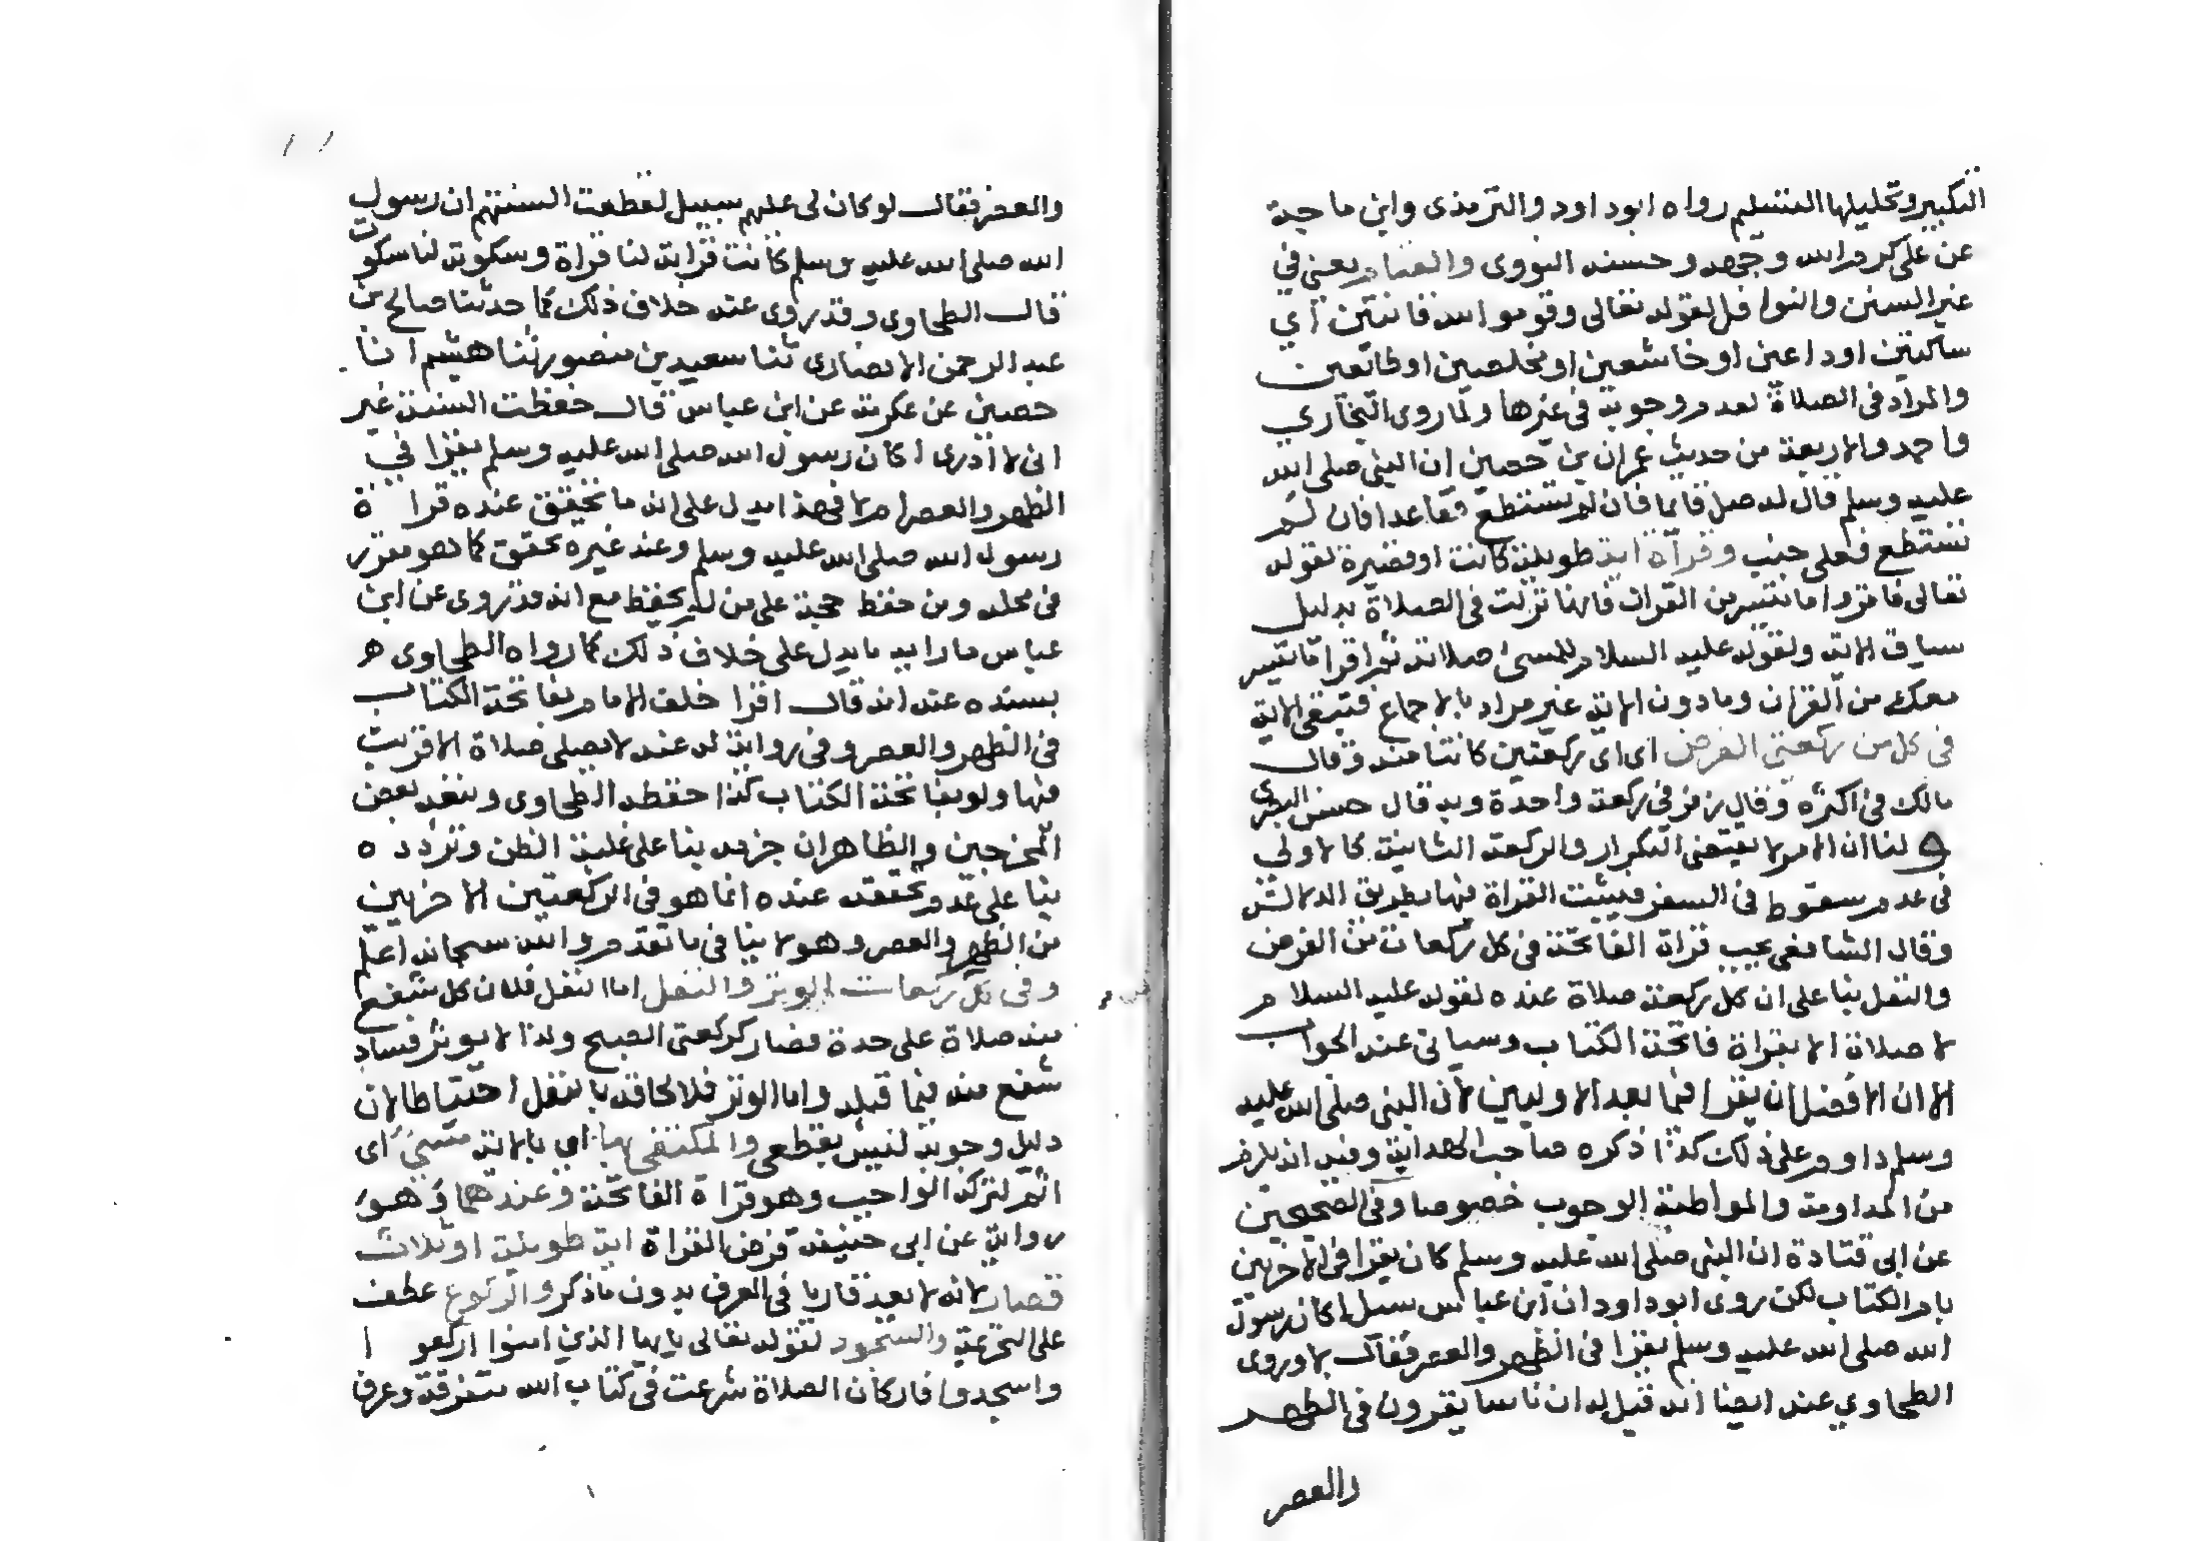 التكبير وتحليلها التسليم رواه ابوداود والترمذى وابن ماجة
عن على كرم الله وجهه وحسنه النووى والقيام يعنى في
غير السنن والنوافل لقوله تعالى وقوموا لله قانتين أي
ساكتين او داعين او خاشعين او مخلصين او طائعين
والمراد في الصلاة لعدم وجوبه في غيرها ولما روى البخاري
واحمد والاربعة من حديث عمران بن حصين ان النبي صلى الله
عليه وسلم قال له صل قائما فان لم تستطع فقاعدا فان لم
تستطع فعلى جنب وقرأة اية طويلة كانت او قصيرة لقوله
تعالى فاقروا ما تيسر من القران فانها نزلت في الصلاة بدليل
سياق الاية ولقوله عليه السلام للمسئ صلاته ثم اقرا ما تيسر
معك من القران وما دون الاية غير مراد بالاجماع فتبقى الاية
في كل من ركعتي الفرض اى اى ركعتين كانتا منه وقال
مالك في اكثره وقال زفر في ركعة واحدة وبه قال حسن البصرى
و لنا ان الامر لا يقتضى التكرار والركعة الثانية كالاولى
في عدم سقوط في السفر فيثبت القراة فيها بطريق الدلالة
وقال الشافعى يجب قراة الفاتحة في كل ركعات من الفرض
والنفل بنا على ان كل ركعة صلاة عنده لقوله عليه السلام
لا صلاة الا بقراة فاتحة الكتاب وسياتى عنه الجواب
الا ان الافضل ان يقرا فيما بعد الاوليين لان النبي صلى الله عليه
وسلم داوم على ذلك كذا ذكره صاحب الهداية وفيه انه يلزم
من المداومة والمواظبة الوجوب خصوصا وفي الصحيحين
عن ابى قتادة ان النبي صلى الله عليه وسلم كان يقرا في الاخريين
بام الكتاب لكن روى ابوداود ان ابن عباس سيل اكان رسول
الله صلى الله عليه وسلم يقرا في الظهر والعصر فقال لا وروى
الطحاوي عنه ايضا انه قيل له ان ناسا يقرون في الظهر
والعصر
والعصر فقال لو كان لى عليهم سبيل لقطعت السنتهم ان رسول
الله صلى الله عليه وسلم كانت قرايته لنا قراة وسكوته لنا سكوت
قال الطحاوى وقد روى عنه خلاف ذلك كما حدثنا صالح بن
عبد الرحمن الانصارى ثنا سعيد بن منصور ثنا هشيم انا
حصين عن عكرمة عن ابن عباس قال حفظت السنة غير
انى لا ادرى اكان رسول الله صلى الله عليه وسلم يقرا في
الظهر والعصر ام لا فهذا يدل على انه ما تحقق عنده قراة
رسول الله صلى الله عليه وسلم وعند غيره محقق كما هو مقرر
في محله ومن حفظ حجة على من لم يحفظ مع انه قد روى عن ابن
عباس من رايه ما يدل على خلاف ذلك كما رواه الطحاوى
بسنده عنه انه قال اقرا خلف الامام بفاتحة الكتاب
في الظهر والعصر وفي رواية له عنه لا يصلى صلاة الا قريت
فيها ولو بفاتحة الكتاب كذا حفظه الطحاوى وبعض
المخرجين والظاهر ان جزمه بنا على غلبة الظن وتردده
بنا على عدم تحققه عنده انما هو في الركعتين الاخريين
من الظهر والعصر وهو لا ينافى ما تقدم والله سبحانه اعلم
وفي كل ركعات الوتر والنفل اما النفل فلان كل شفع
منه صلاة على حدة فصار كركعتى الصبح ولذا لا يوثر فساد
شفع منه فيما قبله واما الوتر فلالحاقه بالنفل احتياطا لان
دليل وجوبه ليس بقطعى والمكتفى بها اى بالاية مسيئ اى
اثم لترك الواجب وهو قراة الفاتحة وعندهما وهو
رواية عن ابى حنيفة فرض القراة اية طويلة او ثلاث
قصار لانه لا يعد قاريا في العرف بدون ما ذكر والركوع عطف
على التحريمة والسجود لقوله تعالى يايها الذين امنوا اركعوا
واسجدوا فاركان الصلاة شرعت في كتاب الله متفرقة وعرف